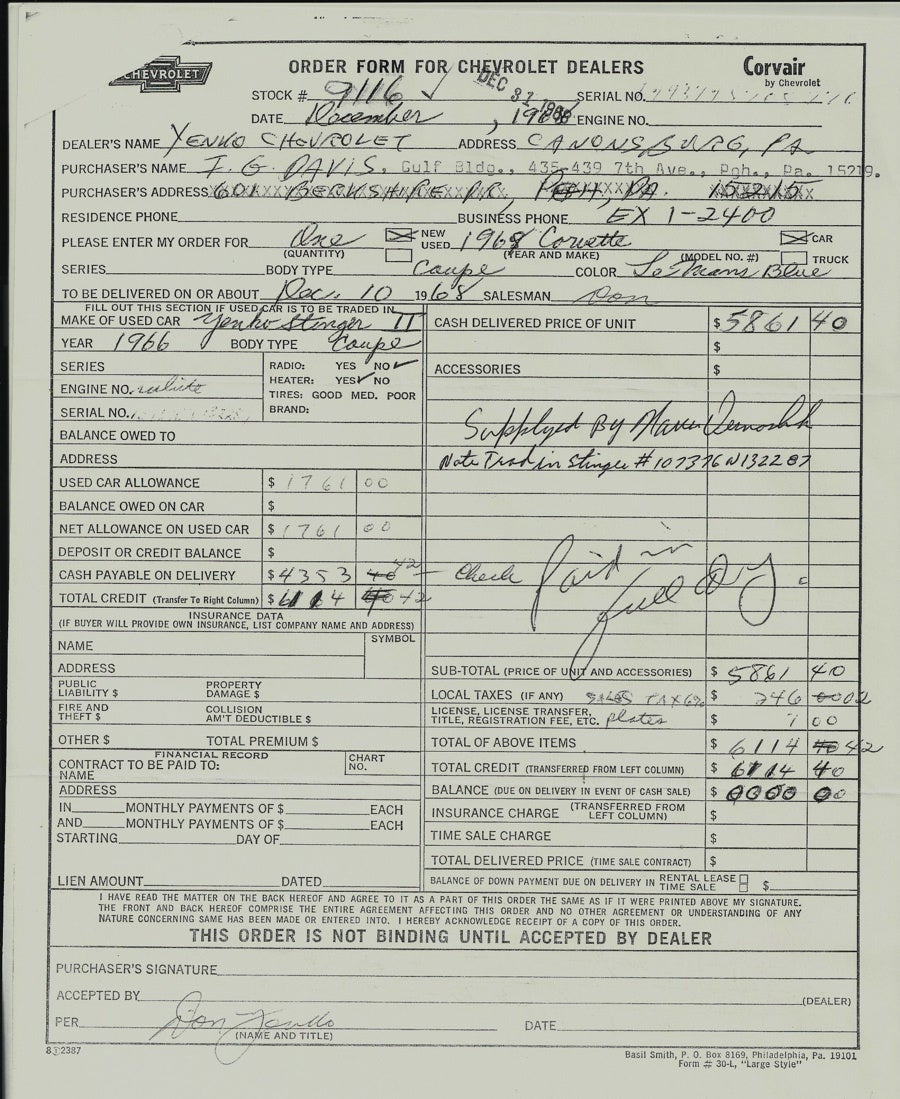 CHEVROLET
ORDER FORM FOR CHEVROLET DEALERS
Corvair
by Chevrolet
STOCK # 9116 ✓ DEC 31 1968 SERIAL NO.
DATE December, 1968 ENGINE NO.
DEALER'S NAME YENKO CHEVROLET ADDRESS CANONSBURG, PA
PURCHASER'S NAME T. G. DAVIS, Gulf Bldg., 435-439 7th Ave., Pgh., Pa. 15219.
PURCHASER'S ADDRESS 601 BERKSHIRE DR, PGH, PA. 15215
RESIDENCE PHONE BUSINESS PHONE EX 1-2400
PLEASE ENTER MY ORDER FOR One NEW USED 1968 Corvette CAR
(QUANTITY) (YEAR AND MAKE) (MODEL NO. #) TRUCK
SERIES BODY TYPE Coupe COLOR Le Mans Blue
TO BE DELIVERED ON OR ABOUT Dec. 10 1968 SALESMAN Don
FILL OUT THIS SECTION IF USED CAR IS TO BE TRADED IN
MAKE OF USED CAR Yenko Stinger II
YEAR 1966 BODY TYPE Coupe
SERIES RADIO: YES NO ✓
HEATER: YES ✓ NO
ENGINE NO. white
TIRES: GOOD MED. POOR
SERIAL NO. BRAND:
BALANCE OWED TO
ADDRESS
USED CAR ALLOWANCE $ 1761 00
BALANCE OWED ON CAR $
NET ALLOWANCE ON USED CAR $ 1761 00
DEPOSIT OR CREDIT BALANCE $
CASH PAYABLE ON DELIVERY $ 4353 40 42 — Check
TOTAL CREDIT (Transfer To Right Column) $ 6114 40 42
INSURANCE DATA
(IF BUYER WILL PROVIDE OWN INSURANCE, LIST COMPANY NAME AND ADDRESS)
NAME SYMBOL
ADDRESS
PUBLIC LIABILITY $ PROPERTY DAMAGE $
FIRE AND THEFT $ COLLISION AM'T DEDUCTIBLE $
OTHER $ TOTAL PREMIUM $
FINANCIAL RECORD
CONTRACT TO BE PAID TO: CHART NO.
NAME
ADDRESS
IN MONTHLY PAYMENTS OF $ EACH
AND MONTHLY PAYMENTS OF $ EACH
STARTING DAY OF
LIEN AMOUNT DATED
CASH DELIVERED PRICE OF UNIT $ 5861 40
$
ACCESSORIES $
Supplyed By
Note Trad in Stinger # 107376W132287
Paid in
full DY
SUB-TOTAL (PRICE OF UNIT AND ACCESSORIES) $ 5861 40
LOCAL TAXES (IF ANY) SALES TAX 6% $ 246 02
LICENSE, LICENSE TRANSFER, TITLE, REGISTRATION FEE, ETC. plates $ 7 00
TOTAL OF ABOVE ITEMS $ 6114 40 42
TOTAL CREDIT (TRANSFERRED FROM LEFT COLUMN) $ 6114 40
BALANCE (DUE ON DELIVERY IN EVENT OF CASH SALE) $ 0000 00
INSURANCE CHARGE (TRANSFERRED FROM LEFT COLUMN) $
TIME SALE CHARGE $
TOTAL DELIVERED PRICE (TIME SALE CONTRACT) $
BALANCE OF DOWN PAYMENT DUE ON DELIVERY IN RENTAL LEASE TIME SALE $
I HAVE READ THE MATTER ON THE BACK HEREOF AND AGREE TO IT AS A PART OF THIS ORDER THE SAME AS IF IT WERE PRINTED ABOVE MY SIGNATURE.
THE FRONT AND BACK HEREOF COMPRISE THE ENTIRE AGREEMENT AFFECTING THIS ORDER AND NO OTHER AGREEMENT OR UNDERSTANDING OF ANY
NATURE CONCERNING SAME HAS BEEN MADE OR ENTERED INTO. I HEREBY ACKNOWLEDGE RECEIPT OF A COPY OF THIS ORDER.
THIS ORDER IS NOT BINDING UNTIL ACCEPTED BY DEALER
PURCHASER'S SIGNATURE
ACCEPTED BY (DEALER)
PER Don Yenko DATE
(NAME AND TITLE)
8J2387
Basil Smith, P. O. Box 8169, Philadelphia, Pa. 19101
Form # 30-L, "Large Style"